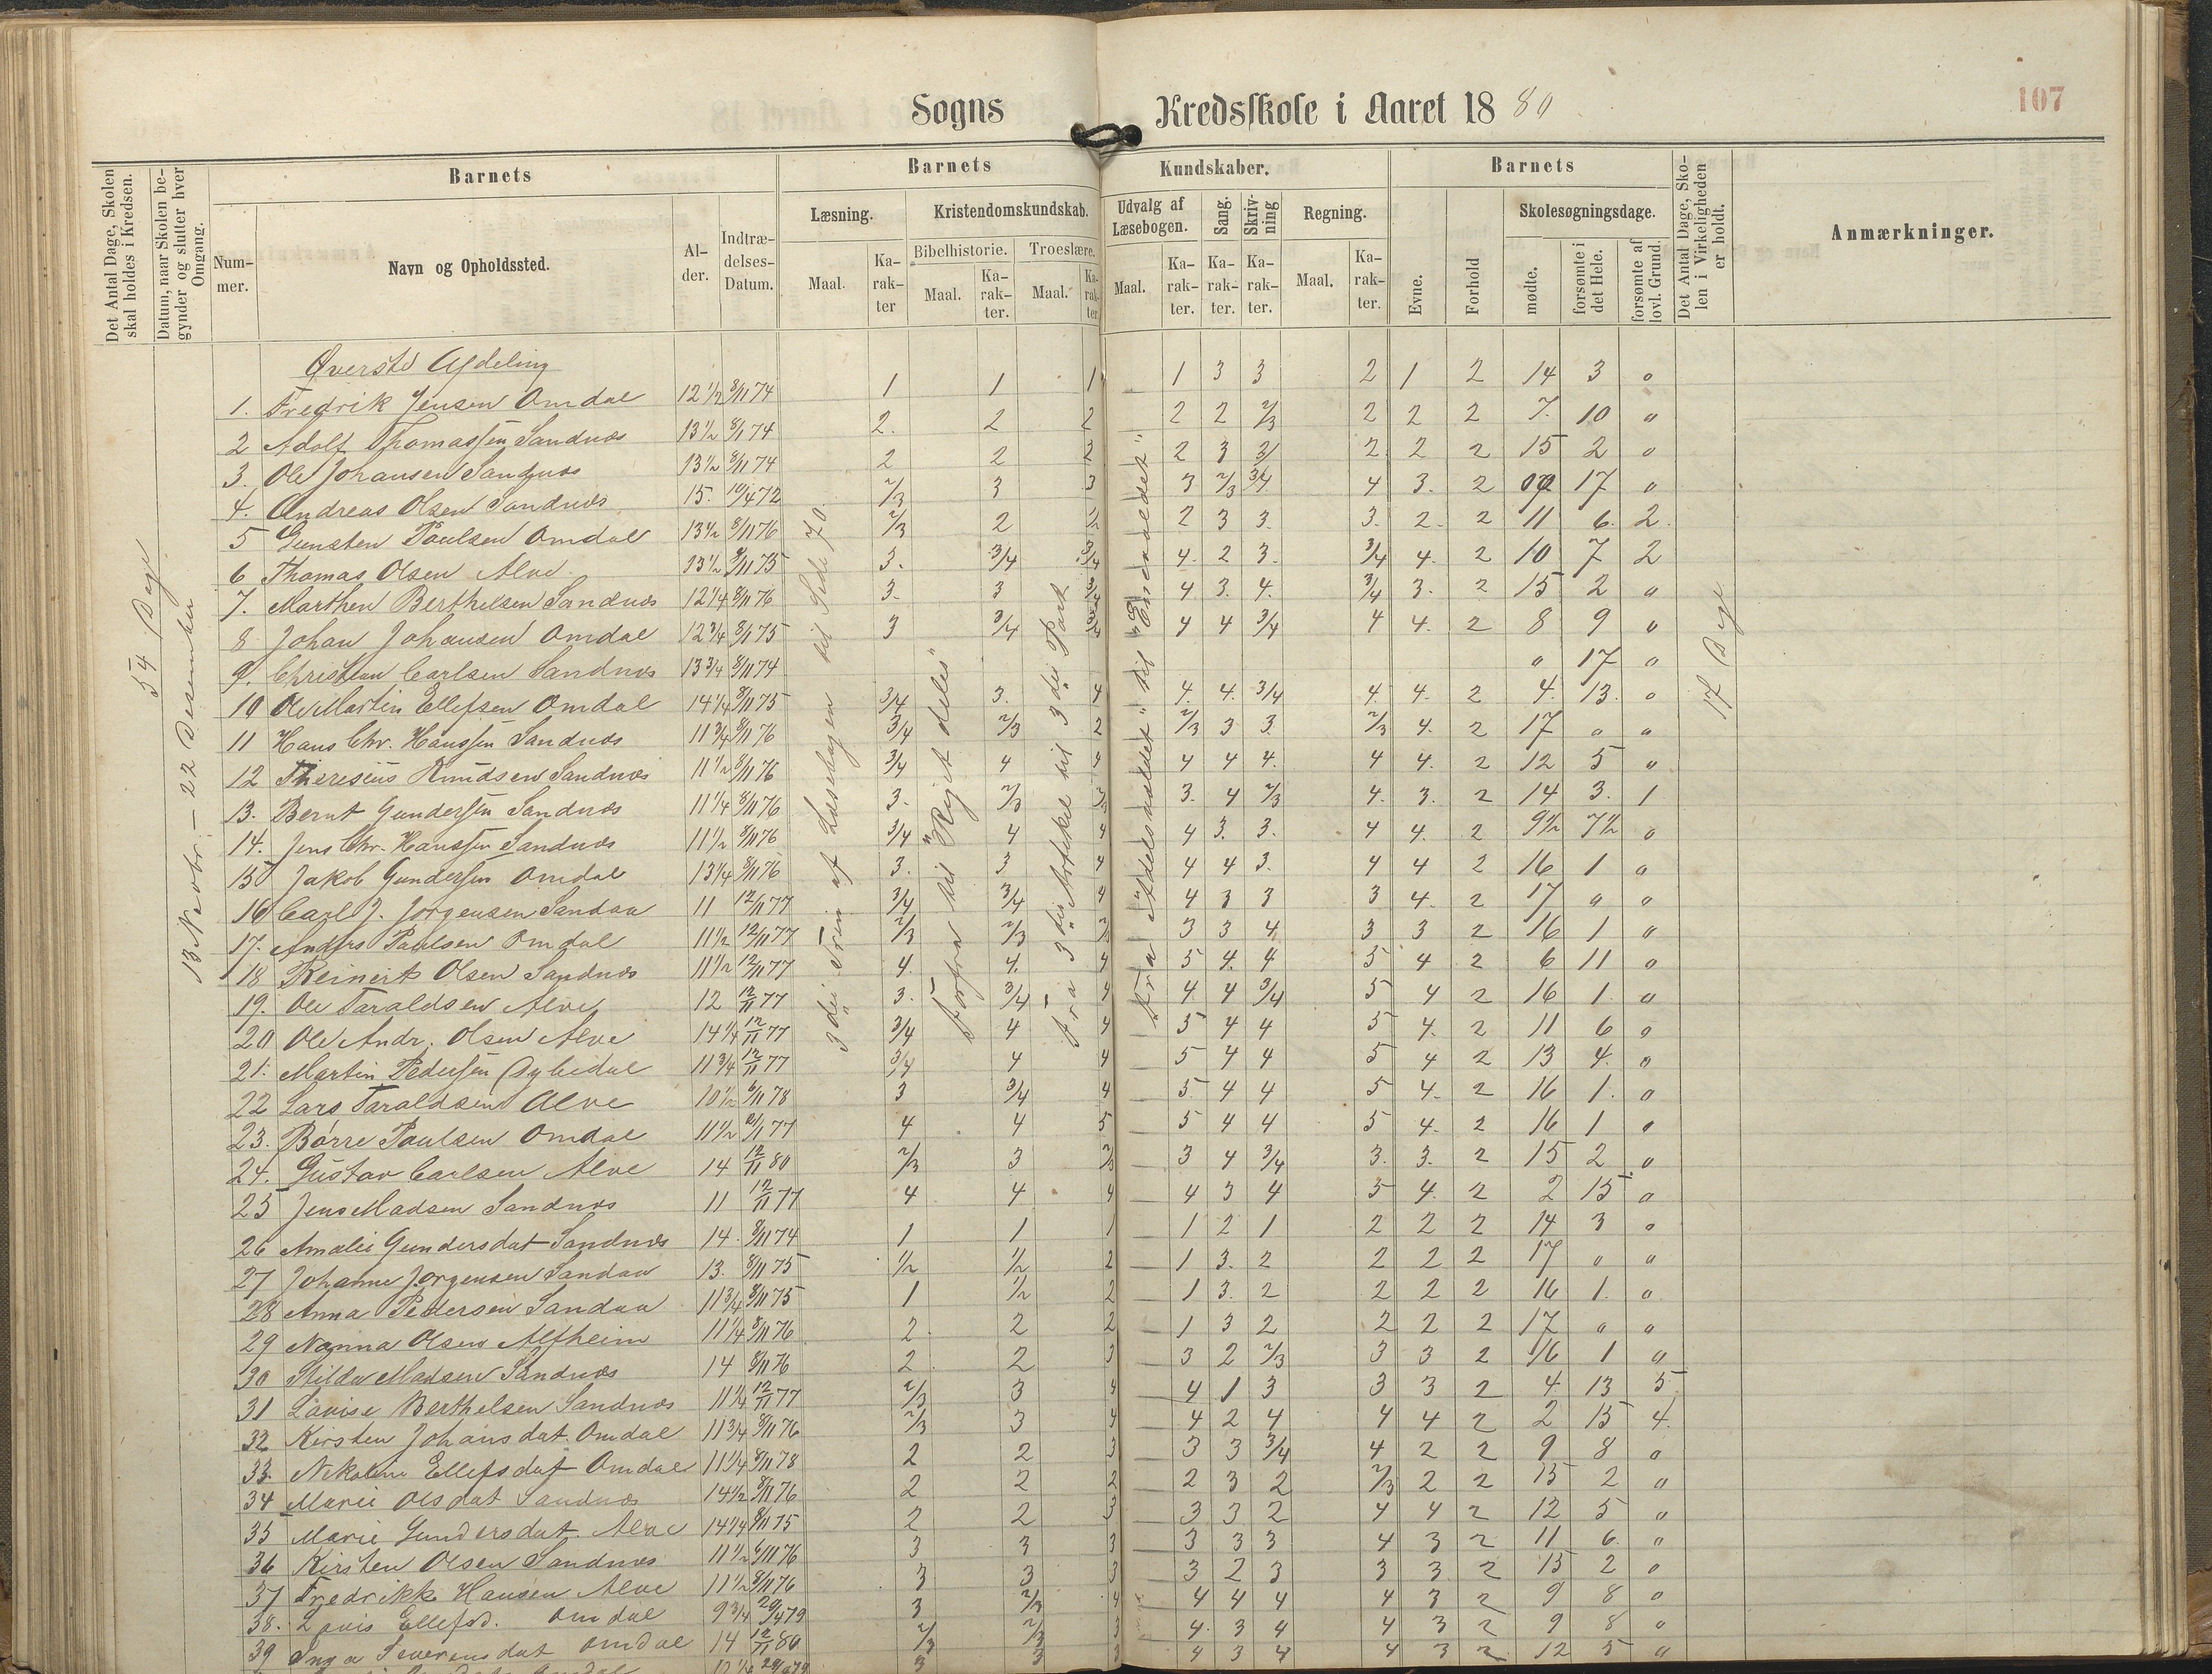 Sogns Kredsskole i Aaret 1880
107
Det Antal Dage, Skolen skal holdes i Kredsen.
Datum, naar Skolen begynder og slutter hver Omgang.
Barnets
Nummer.
Navn og Opholdssted.
Alder.
Indtrædelses-Datum.
Barnets Kundskaber.
Læsning.
Maal.
Karakter
Kristendomskundskab.
Bibelhistorie.
Maal.
Karakter.
Troeslære.
Maal.
Karakter
Udvalg af Læsebogen.
Maal.
Karakter.
Sang.
Karakter.
Skrivning
Karakter.
Regning.
Maal.
Karakter.
Barnets
Evne.
Forhold
Skolesøgningsdage.
mødte.
forsømte i det Hele.
forsømte af lovl. Grund.
Det Antal Dage, Skolen i Virkeligheden er holdt.
Anmærkninger.
54 Dage
13 Novbr. – 22 Desember
3die Trin af Læsebogen til Side 70.
Forfra til "Riget deles"
Fra 3die Artikel til 3die Part
17 Dage
Øverste Afdeling
1. Fredrik Jensen Omdal 12 1/2 8/11 74 1 1 1 — 1 3 3 2 1 2 14 3 "
2 Adolf Thomassen Sandnæs 13 1/2 8/11 74 2. 2 2 2 2 2/3 2 2 2 7. 10 "
3. Ole Johansen Sandnæs 13 1/2 8/11 74 2 2 2 2 3 3/ 2 2 2 15 2 "
4. Andreas Olsen Sandnæs 15. 10/4 72 2/3 3 3 3 2/3 3/4 4 3. 2 17 "
5 Gunsten Paulsen Omdal 13 1/2 8/11 76 2/3 2 1/2 2 3 3. 3. 2. 2 11 6. 2.
6 Thomas Olsen Alve. 13 1/2 8/11 75 3. 3/4 3/4 4. 2 3. 3/4 4. 2 10 7 2
7. Marthen Berthelsen Sandnæs 12 1/4 8/11 76 3. 3 4 3. 4. 3/4 3. 2 15 2 "
8 Johan Johansen Omdal 12 3/4 8/11 75 3 3/4 4 4 3/4 4 4. 2 8 9 "
9. Christian Carlsen Sandnæs 13 3/4 8/11 74 " 17 "
10 Ole Martin Ellefsen Omdal 14 1/4 8/11 75 3/4 3. 4 4. 4. 3/4 4. 4. 2 4. 13. "
11 Hans Chr. Hanssen Sandnæs 11 3/4 8/11 76 3/4 2/3 2 2/3 3 3. 2/3 4. 2 17 " "
12 Theresius Knudsen Sandnæs 11 1/2 8/11 76 3/4 4 4 4 4 4. 4 4. 2 12 5 "
13. Bernt Gundersen Sandnæs 11 1/4 8/11 76 3. 2/3 2/3 3. 4 2/3 4. 3. 2 14 3. 1
14. Jens Chr. Hanssen Sandnæs 11 1/2 8/11 76 3/4 4 4 4 3. 3. 4 4. 2 9 1/2 7 1/2 "
15 Jakob Gundersen Omdal 13 1/4 8/11 76 3. 3 4 4 4 3. 4 4 2 16 1 "
16 Carl J. Jørgensen Sandaa 11 12/11 77 3/4 3/4 4 4 3 3 3 4. 2 17 " "
17. Anders Paulsen Omdal 11 1/2 12/11 77 2/3 2/3 2/3 3 3 4 3 3 2 16 1 "
18 Reinert Olsen Sandnæs 11 1/2 12/11 77 4. 4. 4 5 4. 4 5 4 2 6 11 "
19. Ole Taraldsen Alve 12 12/11 77 3. 3/4 4 4. 4 3/4 5 4 2 16 1. "
20 Ole Andr. Olsen Alve 14 1/4 12/11 77 3/4 4 4 5 4 4 5 4. 2 11 6 "
21. Martin Pedersen 11 3/4 12/11 77 3/4 4 4 5 4 4 5 4 2 13 4. "
22 Lars Taraldsen Alve 10 1/2 6/11 78 3 3/4 4 5. 4 4 5 4. 2 16 1. "
23. Børre Paulsen Omdal 11 1/2 77 4 4 5 5 4 4 5 4. 2 16 1 "
24. Gustav Carlsen Alve 14 12/11 80 2/3 3 2/3 3 4 3/4 3. 3. 2 15 2 "
25 Jens Madsen Sandnæs 11 12/11 77 4 4 4 4 3 4 5 4. 2 2 15 "
26 Amalie Gundersdat Sandnæs 14. 8/11 74 1 1 1 1 2 1 2 2 2 14 3 "
27 Johanne Jørgensen Sandaa 13. 8/11 75 1/2 1/2 2 1 3. 2 2 2 2 17 " "
28 Anna Pedersen Sandaa 11 3/4 8/11 75 1 1/2 2 1 3. 2 2 2 2 16 1. "
29 Nanna Olsen Alfheim 11 1/4 8/11 76 2. 2 2 1 3 2 2 2 2 17 " "
30 Hilda Madsen Sandnæs 14 8/11 76 2. 2 3 3 2 2/3 3 3 2 16 1 "
31 Lovise Berthelsen Sandnæs 11 1/4 12/11 77 2/3 3 4 4 1 3 3 3 2 4. 13 5
32 Kirsten Johansdat. Omdal 11 3/4 8/11 76 2/3 3 4 4 2 4 4 4 2 2 15 4.
33. Nikoline Ellefsdat Omdal 11 1/4 8/11 78 2 2 3 3 3 3/4 4 2 2 9 8 "
34 Marie Olsdat Sandnæs 14 1/2 8/11 76 2 2 2 2 3 2 2/3 2 2 15 2 "
35 Marie Gundersdat Alve 14 1/4 8/11 75 2 2 3 3 3 2 4 4 2 12 5 "
36 Kirsten Olsen Sandnæs 11 1/2 6/11 76 3 3 3 3 3 3 4 3 2 11 6. "
37 Fredrikke Hansen Alve 11 1/2 8/11 76 3 3 3 3 2 3 3 3. 2 15 2 "
38. Lovis Ellefsd. Omdal 9 3/4 29/4 79 3 2/3 4 4 4 4 4 3 2 9 8 "
39 Inga Severinsdat Omdal 14 12/11 80 2/3 2/3 3 4. 3 4 4 3 2 9 8 "
3 3 3 4 3 4 4 3 2 12 5 "